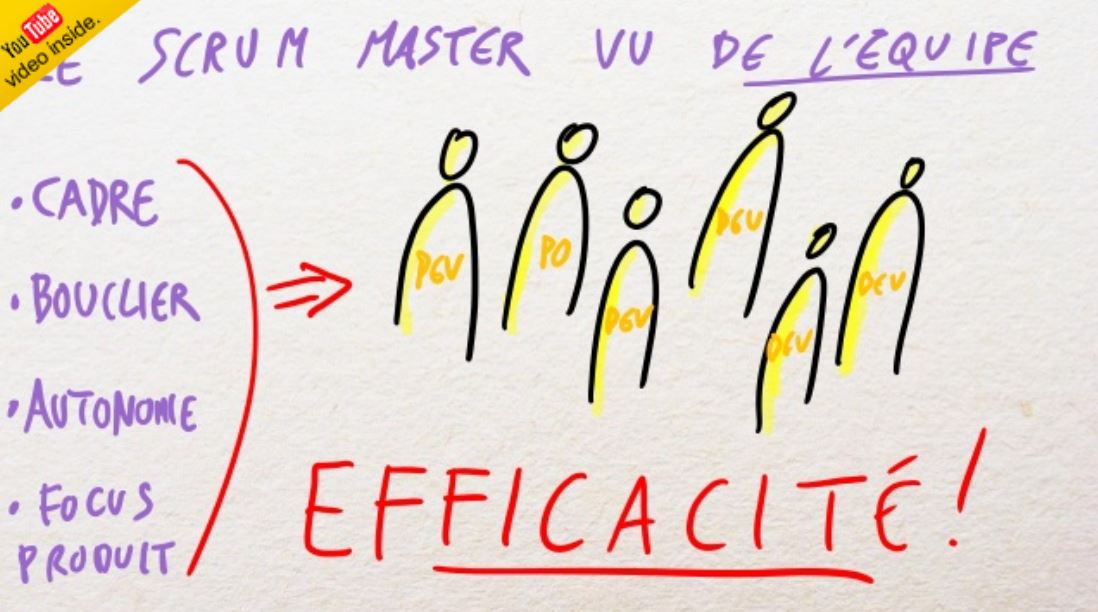 YouTube
video inside.
LE SCRUM MASTER VU DE L'EQUIPE
• CADRE
• BOUCLIER
• AUTONOMIE
• FOCUS
PRODUIT
DEV
PO
DEV
DEV
DEV
DEV
EFFICACITÉ !